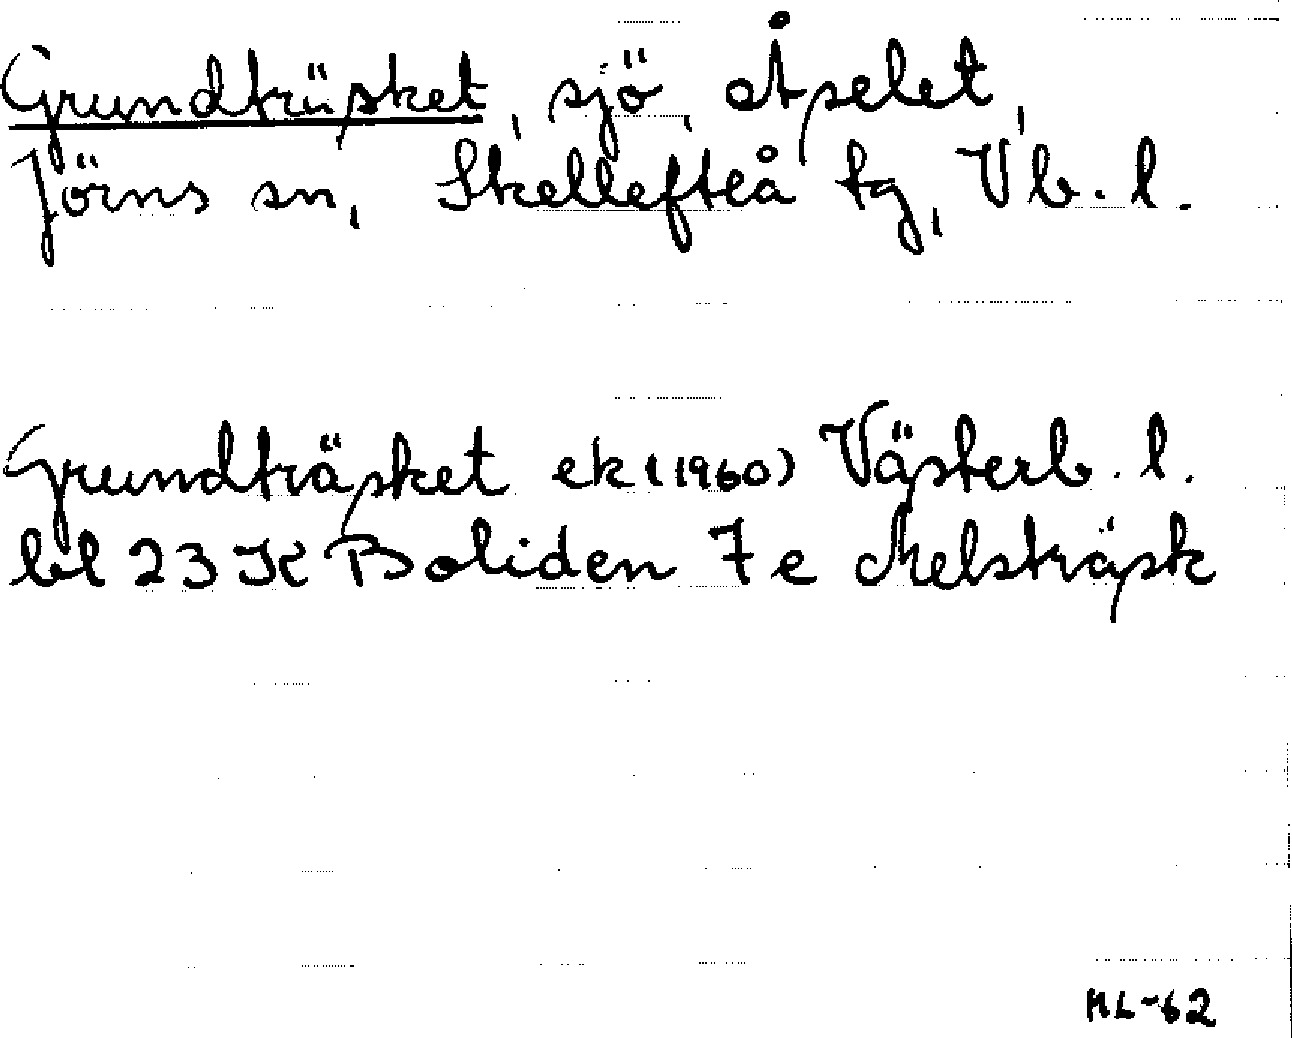 Grundträsket, sjö, Åselet,
Jörns sn, Skellefteå tg, Vb. l.
Grundträsket ek (1960) Västerb. l.
bl 23 K Boliden 7 e Melsträsk
ML-62